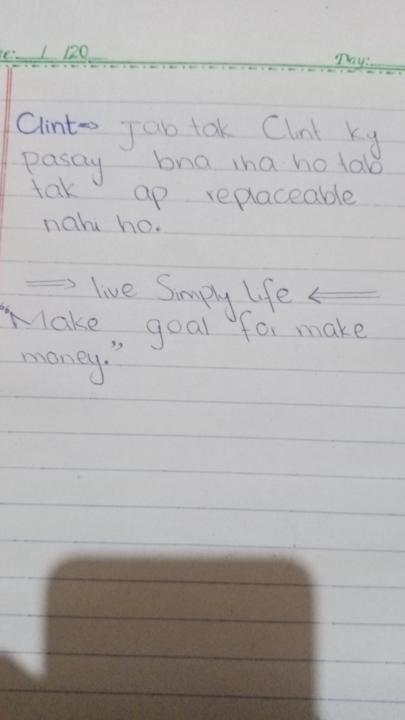 e: / /20 Day:
Clint⇒ Jab tak Clint ky
pasay bna rha ho tab
tak ap replaceable
nahi ho.
⇒ live Simply life ⇐
"Make goal for make
money."